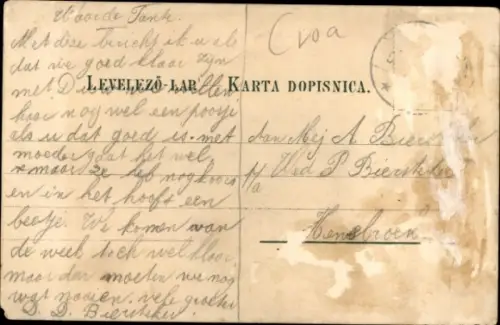 Waarde Tante.
Met deze bericht ik u als
dat we goed klaar zijn
met D
nog wel een pootje
als u dat goed is. met
moeder gaat het wel
maar ze heb nog koors
en in het hooft een
beetje. We komen van
de week toch wel klaar
maar dan moeten we nog
wat naaien. vele groeten
D. D. Biersteker
Croa
LEVELEZŐ-LAP KARTA DOPISNICA.
Aan Mej A Biersteker
p/a Wed P Biersteker
Hensbroek